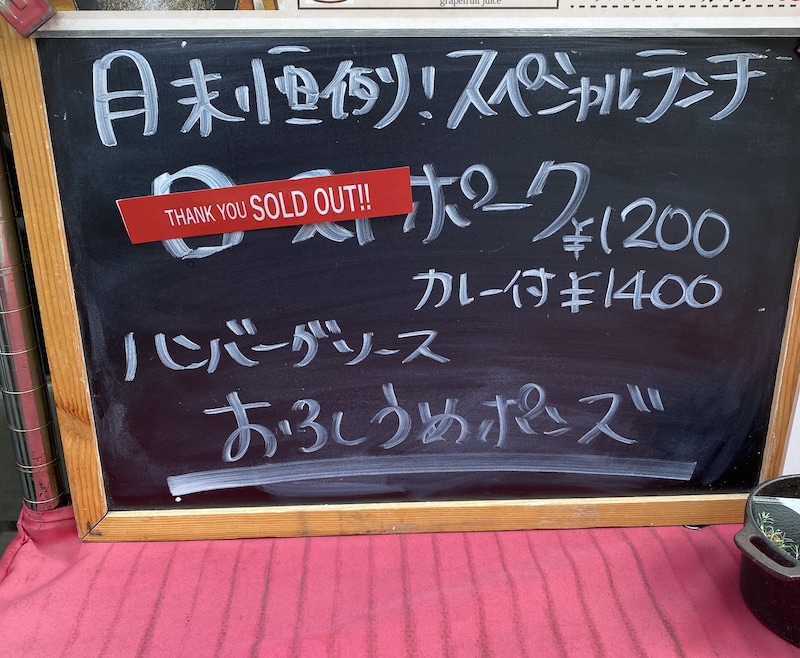 grapefruit juice
月末恒例!スペシャルランチ
THANK YOU SOLD OUT!!
ローストポーク ¥1200
カレー付 ¥1400
ハンバーグソース
おろしうめポンズ